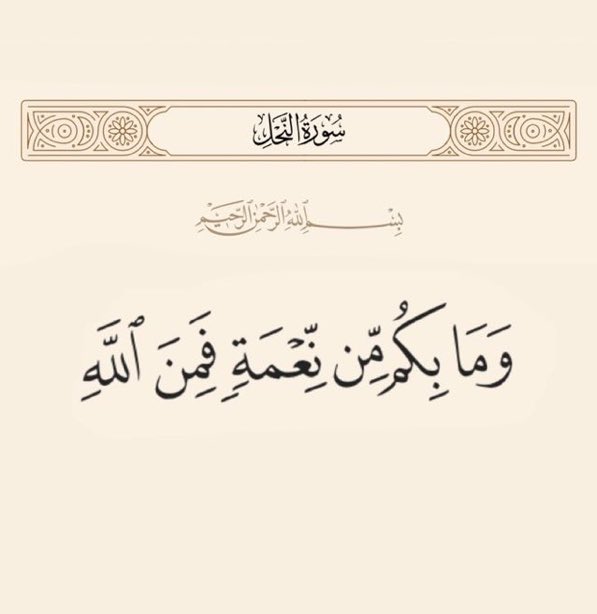 سُورَةُ النَّحْلِ
بِسْمِ ٱللَّهِ ٱلرَّحْمَٰنِ ٱلرَّحِيمِ
وَمَا بِكُم مِّن نِّعْمَةٍ فَمِنَ ٱللَّهِ